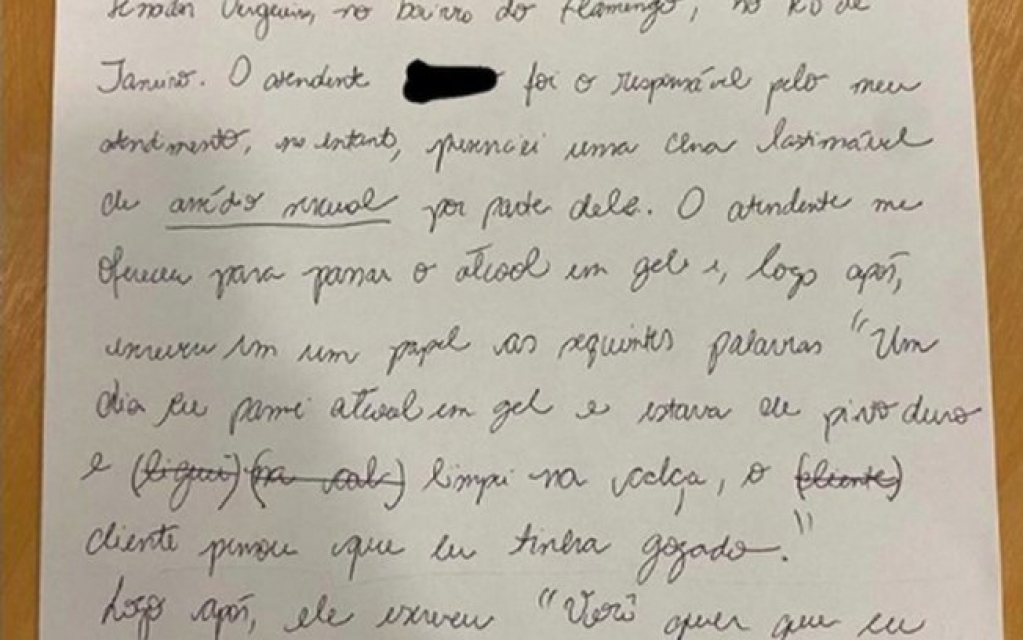 Senador Vergueiro, no bairro do Flamengo, no Rio de
Janeiro. O atendente foi o responsável pelo meu
atendimento, no entanto, presenciei uma cena lastimável
de assédio sexual por parte dele. O atendente me
ofereceu para passar o álcool em gel e, logo após,
escreveu em um papel as seguintes palavras "Um
dia eu passei álcool em gel e estava de pinto duro
e (liguei) (na cal) limpei na calça, o (cliente)
cliente pensou que eu tinha gozado."
Logo após, ele escreveu "Você quer que eu